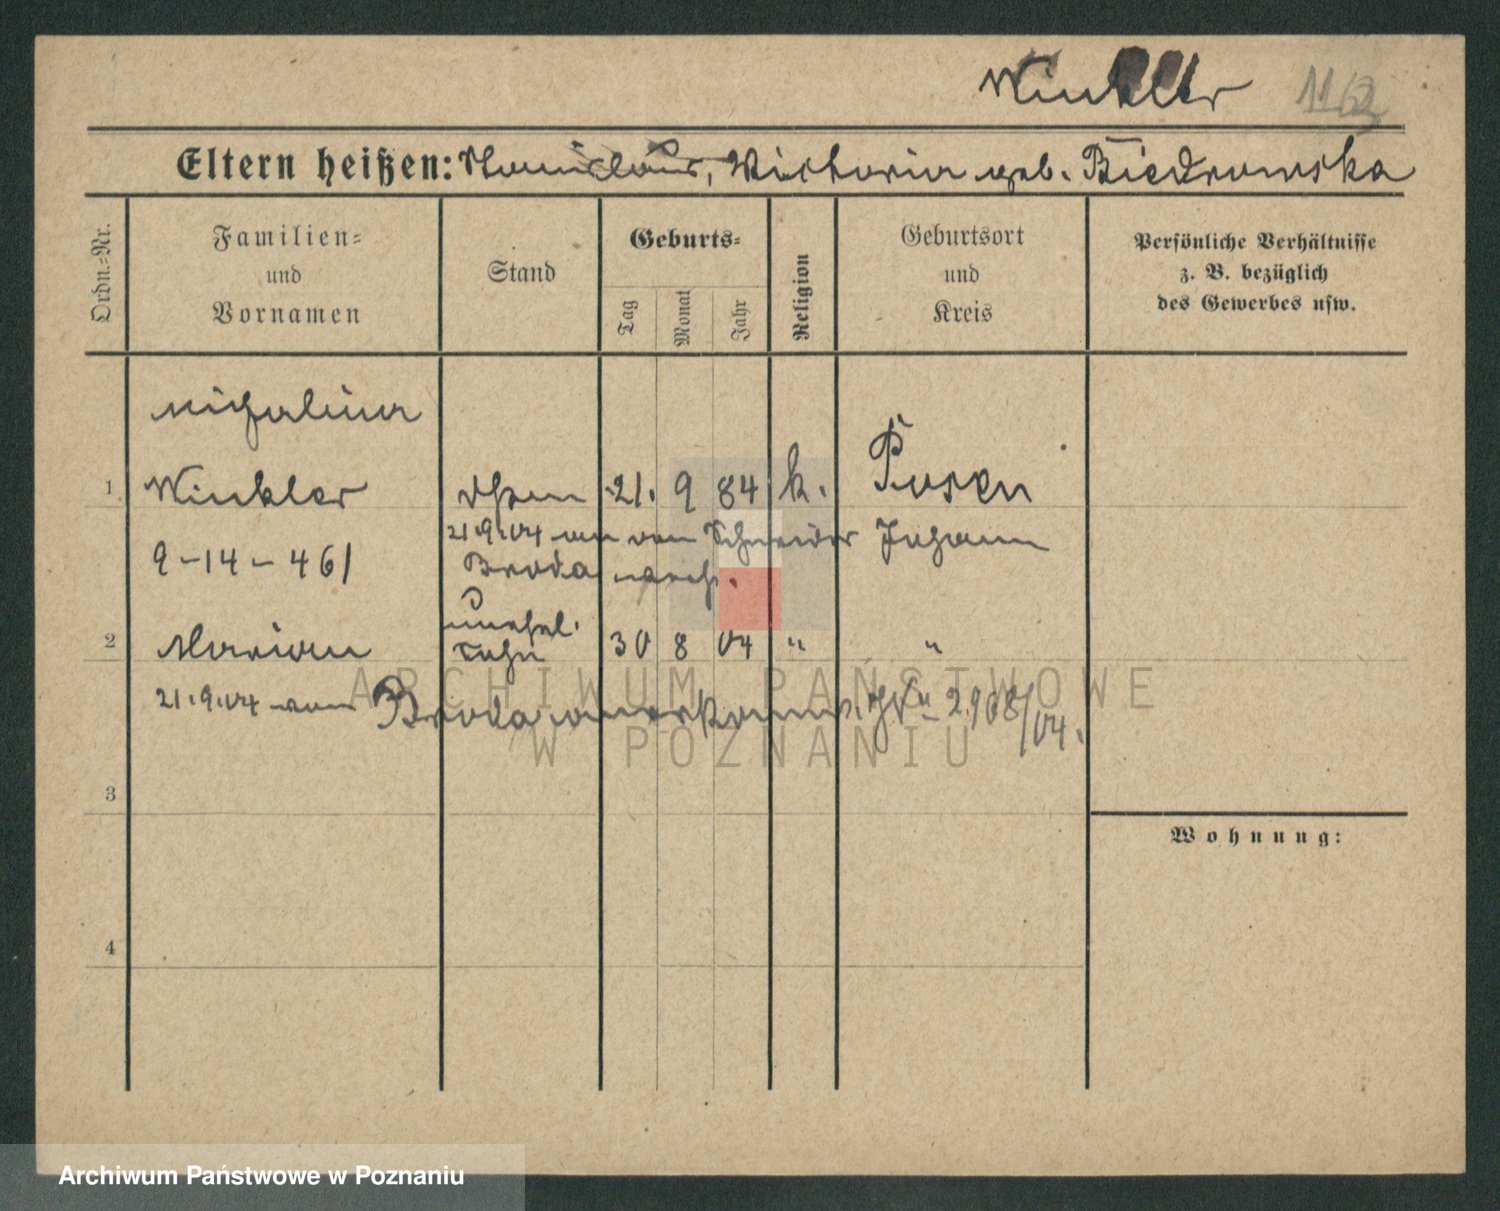 Winkler 1162
Eltern heißen: Stanislaus, Victoria geb. Biedrowska
Ordn.-Nr.
Familien-
und
Vornamen
Stand
Geburts-
Tag
Monat
Jahr
Religion
Geburtsort
und
Kreis
Persönliche Verhältnisse
z. B. bezüglich
des Gewerbes usw.
Michalina
1 Winkler 21. 9 84 k. Posen
21.9.04 an von Schneider Johann
9-14-461 Broda
unehel.
2 Marian Sohn 30 8 04 " "
21.9.04 von Broda anerkannt. 2908/04.
3
Wohnung:
4
ARCHIWUM PAŃSTWOWE
W POZNANIU
Archiwum Państwowe w Poznaniu